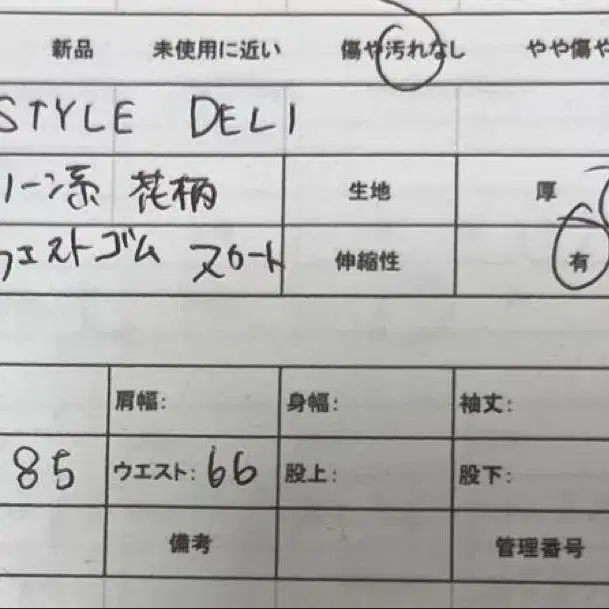 新品 未使用に近い 傷や汚れなし やや傷や
STYLE DELI
リーン系 花柄 生地 厚
ウエストゴム スカート 伸縮性 有
肩幅: 身幅: 袖丈:
85 ウエスト: 66 股上: 股下:
備考 管理番号